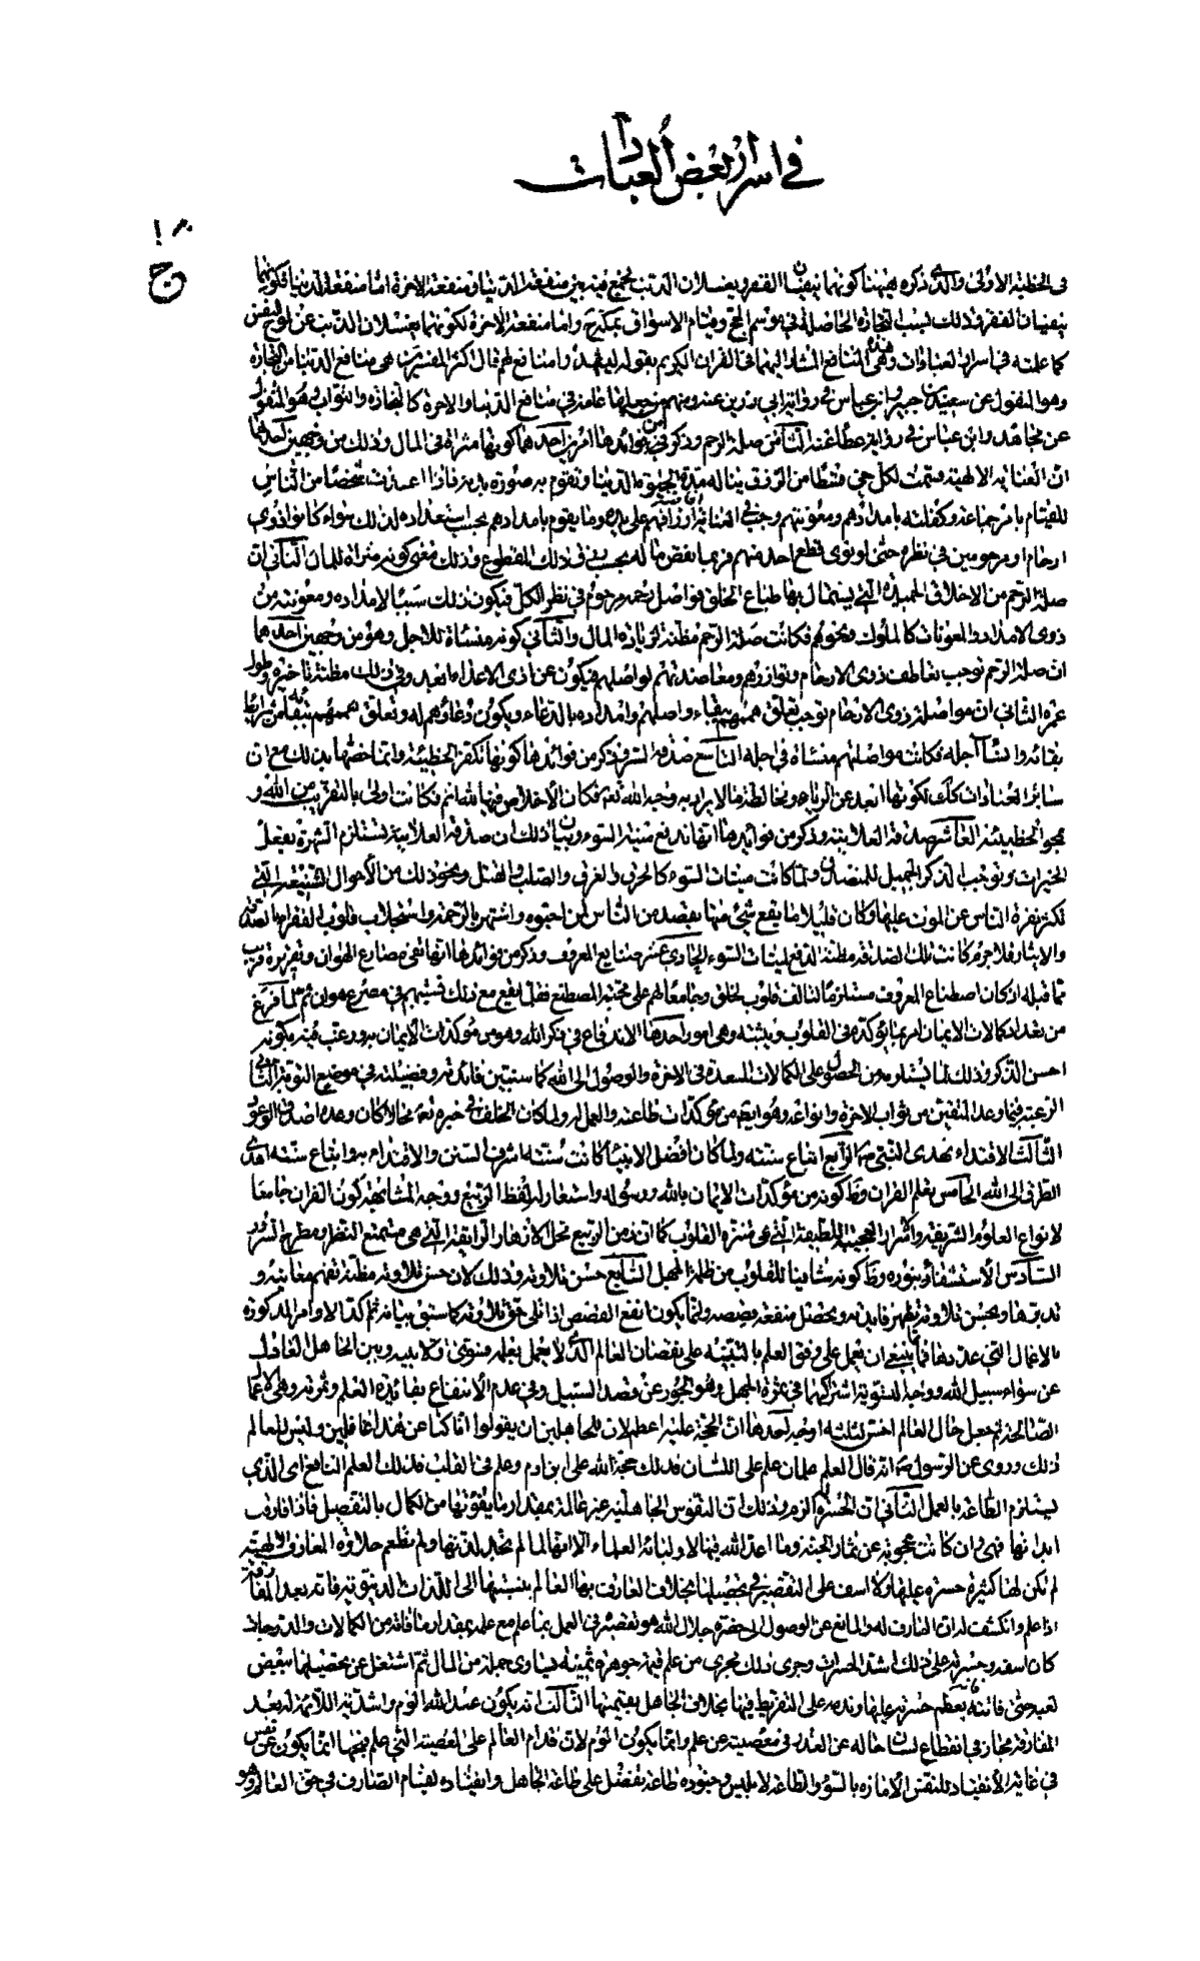 في اسرار بعض العبادات
ج ١
في الخطبة الاولى والذي ذكره هيهنا كونهما ينفيان الفقر ويغسلان الذنب فجمع فيه بين منفعة الدنيا ومنفعة الاخرة امّا منفعة الدنيا فكونهما
ينفيان الفقر وذلك بسبب التجارة الحاصلة في موسم الحج وقيام الاسواق بمكة ح وامّا منفعة الاخرة لكونهما يغسلان الذنب عن لوح النفس
كما علمته في اسرار العبادات وهي المنافع المشار اليها في القران الكريم بقوله ليشهدوا منافع لهم قال اكثر المفسرين هي منافع الدنيا من التجارة
وهو المنقول عن سعيد بن جبير وابن عباس في رواية ابي رزين عنه ومنهم من جعلها عامة في منافع الدنيا والاخرة كالتجارة والثواب وهو المنقول
عن مجاهد وابن عباس في رواية عطا عنه الثامن صلة الرحم وذكر من فوايدها امرين احدهما كونها مثراة في المال وذلك من وجهين احدهما
انّ العناية الالهية قسمت لكل حي قسطا من الرزق يناله مدة الحيوة الدنيا وتقوم به صورة بدنه فاذا اعدت شخصا من الناس
للقيام بامر جماعة وكفلته بامدادهم ومعونتهم وجب في العناية افاضة ارزاقهم على يده وما يقوم بامدادهم بحسب استعداده لذلك سواء كانوا ذوي
ارحام او مرحومين في نظره حتى لو نوى قطع احد منهم فربما نقص ماله بحسب رزق ذلك المقطوع وذلك معنى كونه مثراة للمال الثاني ان
صلة الرحم من الاخلاق الحميدة التي يستمال بها طباع الخلق فواصل رحمه مرحوم في نظر الكل فيكون ذلك سببا لامداده ومعونته من
ذوي الامداد والمعونات كالملوك ونحوهم فكانت صلة الرحم مظنة لزيادة المال والثاني كونه منساة للاجل وهو من وجهين احدهما
ان صلة الرحم توجب تعاطف ذوي الارحام وتوازرهم ومعاضدتهم لواصلهم فيكون عن اذى الاعداء ابعد وفي ذلك مظنة تاخيره وطول
عمره الثاني ان مواصلة ذوي الارحام توجب تعلق هممهم ببقاء واصلهم وامداده بالدعاء ويكون دعاؤهم له وتعلق هممهم ببقائه من شرايط
بقائه وانساء اجله فكانت مواصلتهم منساة في اجله التاسع صدقة السر وذكر من فوائدها كونها تكفر الخطيئة وانما خصها بذلك مع ان
سائر العبادات كذلك لكونها ابعد عن الرياء ومخالطة ما لا يراد به وجه الله تعم فكان الاخلاص فيها لله اتم فكانت اولى بالتقريب من الله و
محو الخطيئة العاشر صدقة العلانية وذكر من فوايدها انها تدفع ميتة السوء وبيان ذلك ان صدقة العلانية تستلزم الشهرة بفعل
الخيرات وتوجب الذكر الجميل للمتصدق ولما كانت ميتات السوء كالحرق والغرق والصلب والقتل ونحو ذلك من الاحوال الشنيعة التي
تكثر نفرة الناس عن الموت عليها وكان قليلا ما يقع شيء منها بقصد من الناس لمن احبوه واشتهر بالرحمة واستجلاب قلوب الفقراء بالصدقة
والايثار فلا جرم كانت تلك الصدقة مظنة الدفع لميتات السوء الحادي عشر صنايع المعروف وذكر من فوائدها انها تقي مصارع الهوان وتقريره قريب
مما قبله اذ كان اصطناع المعروف مستلزما لتالف قلوب الخلق وجامعا لهم على محبة المصطنع فقل ما يقع مع ذلك فتيهم في مصرع هوان ثم لما فرغ
من تعداد كمالات الايمان امر بما يؤكده في القلوب ويثبته وهي امور احدها الاندفاع في ذكر الله وهو من مؤكدات الايمان به ورغب فيه بكونه
احسن الذكر وذلك لما يستلزمه من الحصول على الكمالات المسعدة في الاخرة والوصول الى الله كما سنبين فائدته وفضيلته في موضع اليق به الثاني
الرغبة فيما وعد المتقين من ثواب الاخرة وانواعه وهو ايضا من مؤكدات طاعته والعمل له ولما كان الخلف في خبره تعم محالا كان وعده اصدق الوعود
الثالث الاقتداء بهدى النبي ص الرابع اتباع سنته ولما كان افضل الانبيا كانت سنته اشرف السنن والاقتداء به واتباع سنته اهدى
الطرق الى الله الخامس تعلم القران وظ كونه من مؤكدات الايمان بالله ورسوله واستعار له لفظ الربيع ووجه المشابهة كون القران جامعا
لانواع العلوم الشريفة والاسرار العجيبة اللطيفة التي هي متنزه القلوب كما ان زمن الربيع محل الازهار الرايقة التي هي مستمتع النظر ومطرح السرور
السادس الاستشفاء بنوره وظ كونه شافيا للقلوب من ظلمة الجهل السابع حسن تلاوته وذلك لان حسن تلاوته مظنة تفهم معانيه و
تدبرها وبحسن تلاوته تظهر فايدته ويحصل منفعة قصصه وانما يكون انفع القصص اذا تلي حق تلاوته كما سبق بيانه ثم اكد الاوامر المذكورة
بالاعمال التي عددها بما ينبغي ان يعمل على وفق العلم بالتنبيه على نقصان العالم الذي لا يعمل بعلمه فسوى بينه وبين الجاهل العادل
عن سواء سبيل الله ووجه التسوية اشتراكهما في ثمرة الجهل وهو الجور عن قصد السبيل وفي عدم الانتفاع بفائدة العلم وثمرته وهي الاعمال
الصالحة ثم جعل حال العالم اخس لثلثة اوجه احدها ان الحجة عليه اعظم لان للجاهلين ان يقولوا انا كنا عن هذا غافلين وليس للعالم
ذلك وروي عن الرسول ص انه قال العلم علمان علم على اللسان فذلك حجة الله على ابن ادم وعلم في القلب فذلك العلم النافع اي الذي
يستلزم الطاعة بالعمل الثاني ان الحسرة له الزم وذلك ان النفوس الجاهلة غير عالمة بمقدار ما يفوتها من الكمال بالتفصيل فاذا فارقت
ابدانها فهي وان كانت محجوبة عن ثمار الجنة وما اعد الله فيها لاوليائه العلماء الا انها لما لم تجد لذتها ولم تطعم حلاوة المعارف الالهية
لم تكن لها كثيرة حسرة عليها ولا اسف على التقصير في تحصيلها بخلاف العارف بها العالم بنسبتها الى اللذات الدنيوية فانه بعد المفارقة
اذا علم وانكشف له ان الصارف له والمانع عن الوصول الى حضرة جلال الله هو تقصيره في العمل بما علم مع علمه بمقدار ما فاته من الكمالات والدرجات
كان اسفه وحسرته على ذلك اشد الحسرات وجرى ذلك مجرى من علم قيمة جوهرة ثمينة تساوي جملة من المال ثم اشتغل عن تحصيلها ببعض
لعبه حتى فاتته فانه يعظم حسرته عليها وندمه على التفريط فيها بخلاف الجاهل بقيمتها الثالث انه يكون عند الله الوم واشدية اللائمة له بعد
المفارقة مجاز في انقطاع لسان حاله عن العذر في معصيته عن علم وانما يكون الوم لان اقدام العالم على المعصية التي علم قبحها انما يكون عن نفس
في غاية الانقياد للنفس الامارة بالسوء والطاعة لابليس وجنوده طاعة تفضل على طاعة الجاهل وانقياده لقيام الصارف في حق العالم وهو